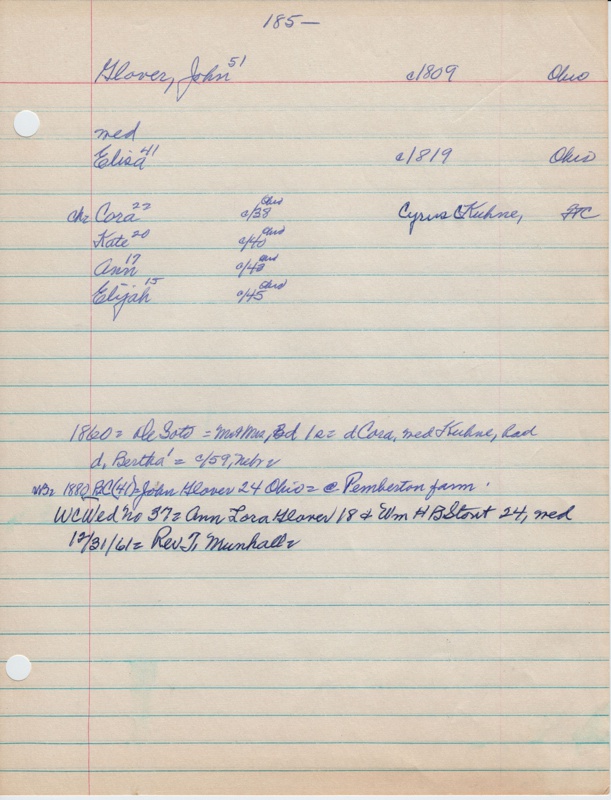 185—
Glover, John 51 c/1809 Ohio
med
Elisa 41 c/1819 Ohio
ch= Cora 22 c/38 Ohio Cyrus C Kuhne, FTC
Kate 20 c/40 Ohio
Ann 17 c/43 Ohio
Elijah 15 c/45 Ohio
1860= De Soto = M&Mrs, Bd 1e= d Cora, med Kuhne, had
d, Bertha 1 = c/59, Nebr=
NB= 1880 BC(41)= John Glover 24 Ohio= @ Pemberton farm.
WCWed No 37= Ann Lora Glover 18 & Wm H B Stout 24, med
12/31/61= Rev. T. Munhall=